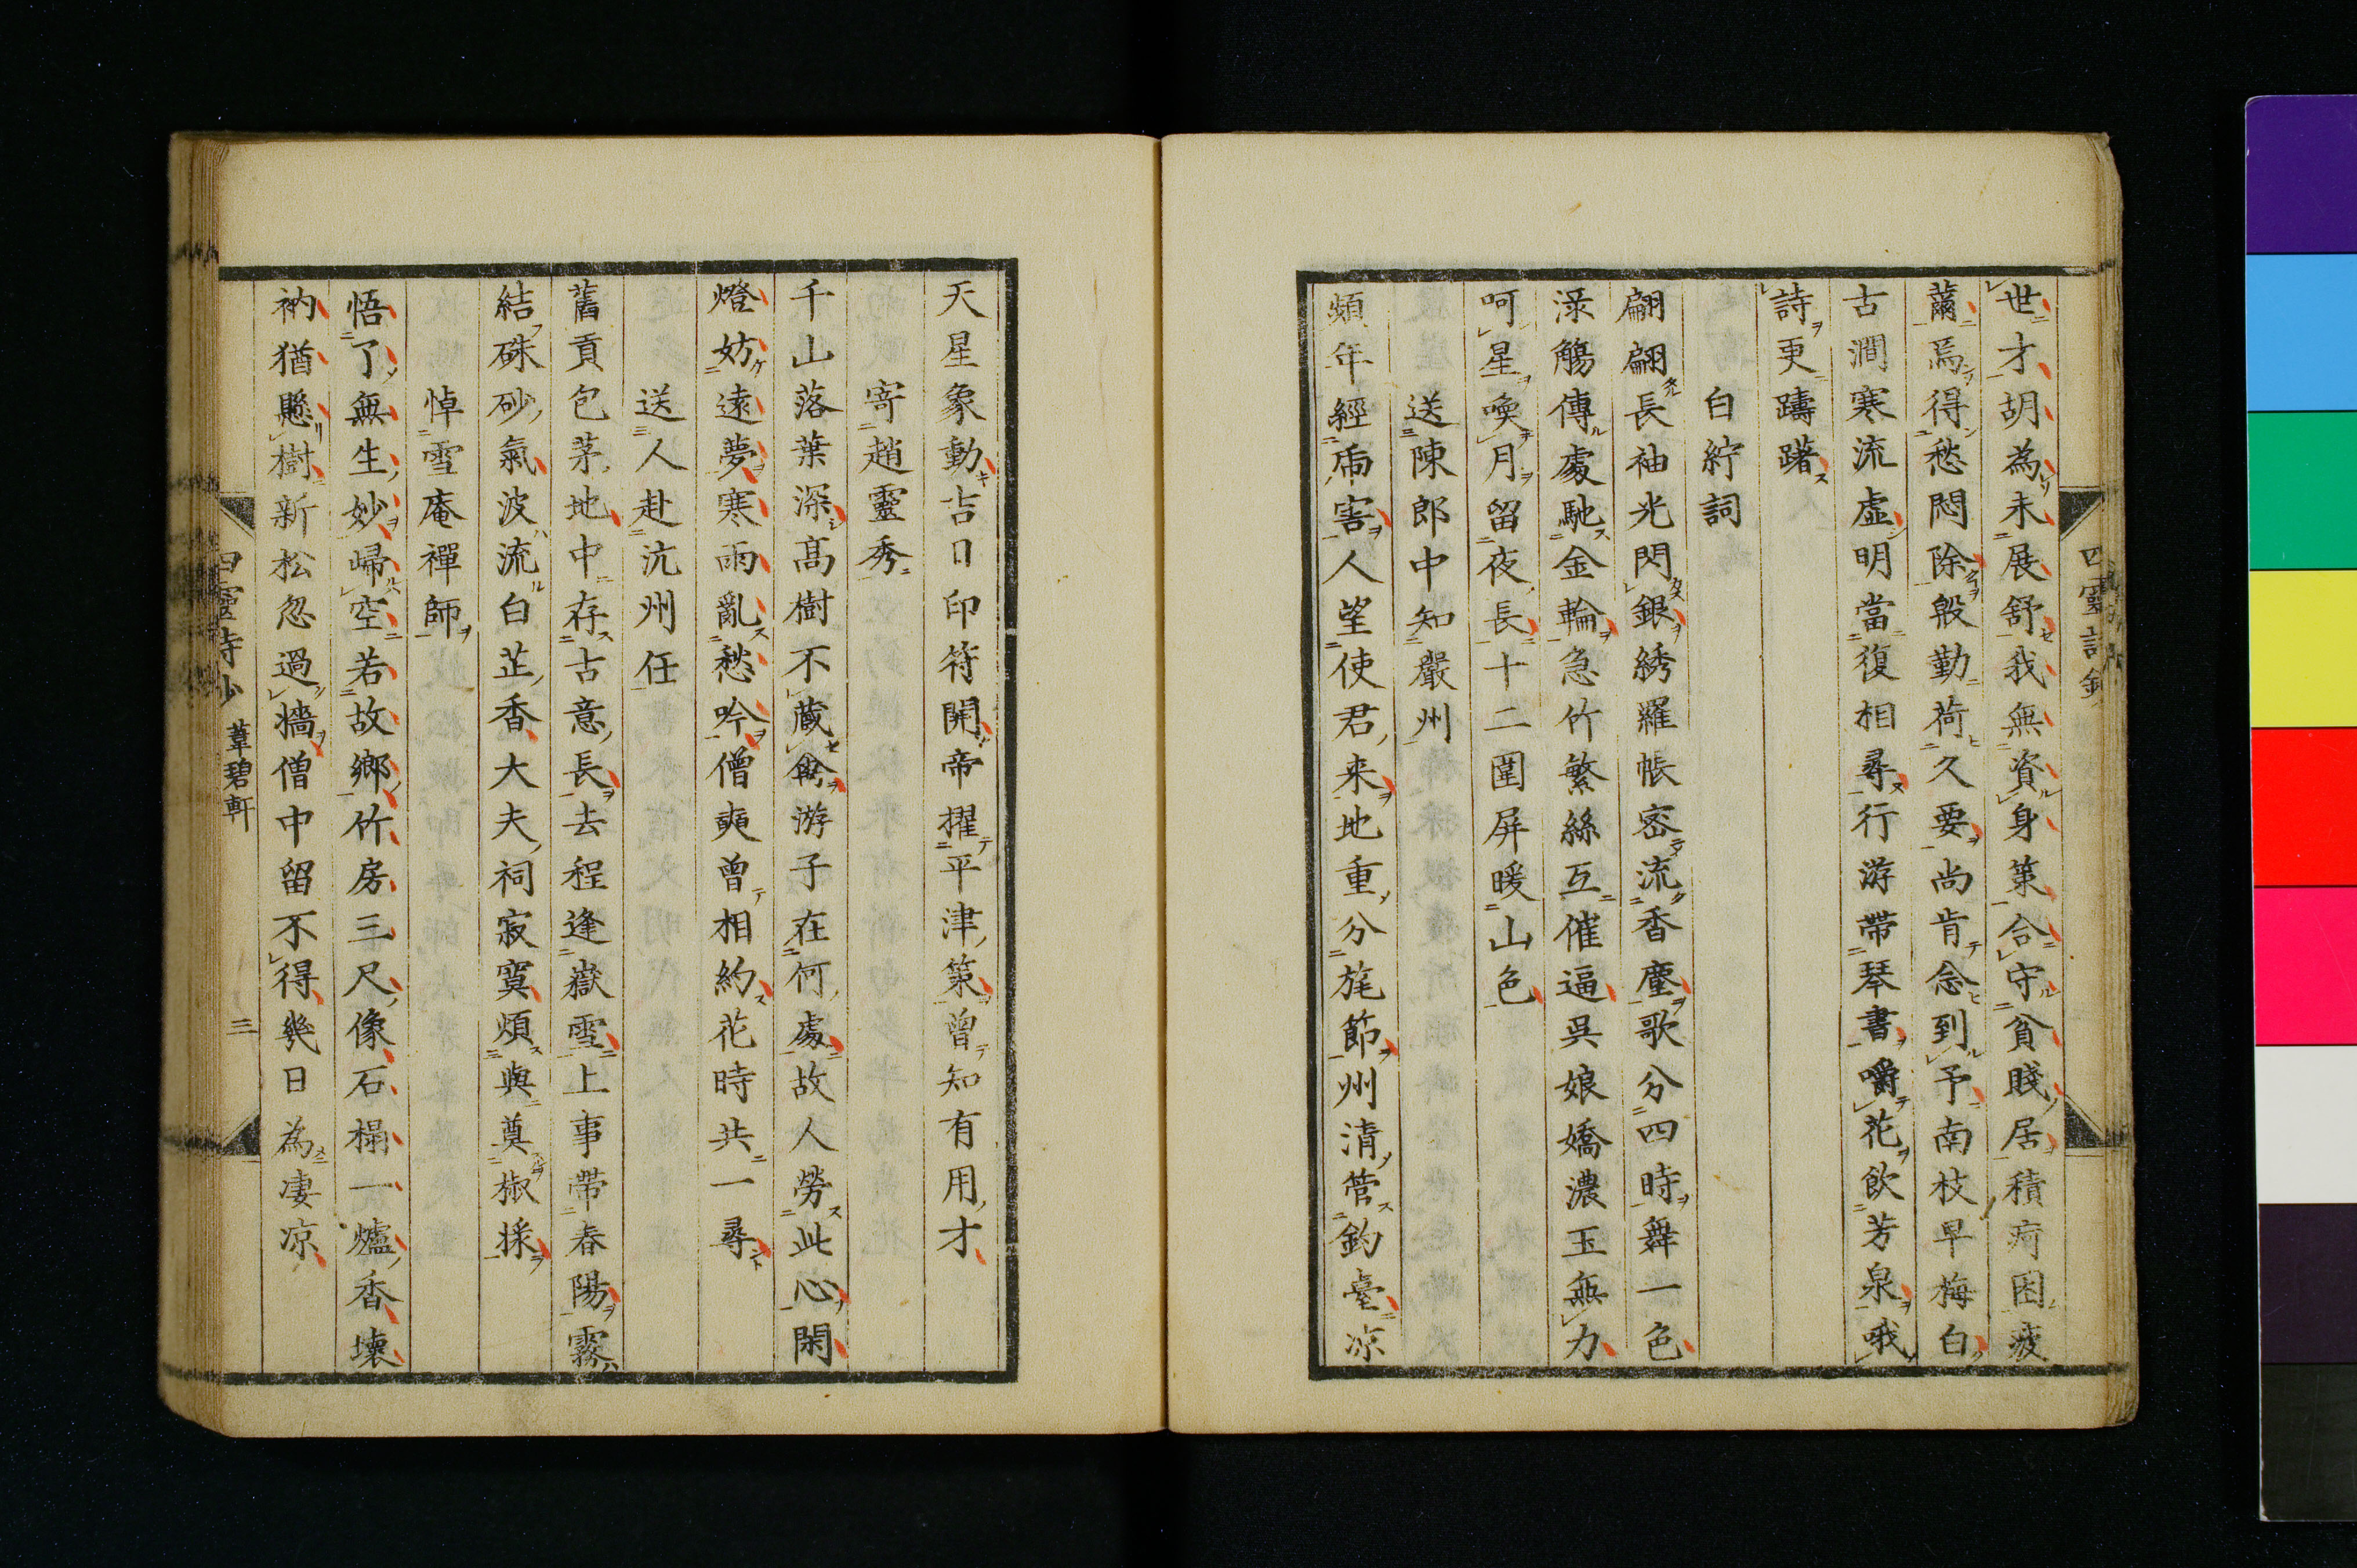 四靈詩鈔
世才胡為未展舒我無資身策合守貧賤居積疴困疲
薾焉得愁悶除殷勤荷久要尚肯念到予南枝早梅白
古澗寒流虛明當復相尋行游帶琴書嚼花飲芳泉哦
詩更躊躇
白紵詞
翩翩長袖光閃銀綉羅帳密流香塵歌分四時舞一色
渌觴傳處馳金輪急竹繁絲互催逼吳娘嬌濃玉無力
呵星喚月留夜長十二圍屏暖山色
送陳郎中知嚴州
頻年經兩害人望使君来地重分旄節州清管釣臺凉
天星象動吉日印符開帝擢平津策曾知有用才
寄趙靈秀
千山落葉深高樹不蔵禽游子在何處故人勞此心閑
燈妨遠夢寒雨亂愁吟僧奭曾相約花時共一尋
送人赴沆州任
舊貢包茅地中存古意長去程逢嶽雪上事帶春陽霧
結硃砂氣波流白芷香大夫祠寂寞煩與奠椒漿
悼雪庵禪師
悟了無生妙歸空若故鄉竹房三尺像石榻一爐香壞
衲猶懸樹新松忽過牆僧中留不得幾日為凄凉
四靈詩鈔 葦碧軒 三